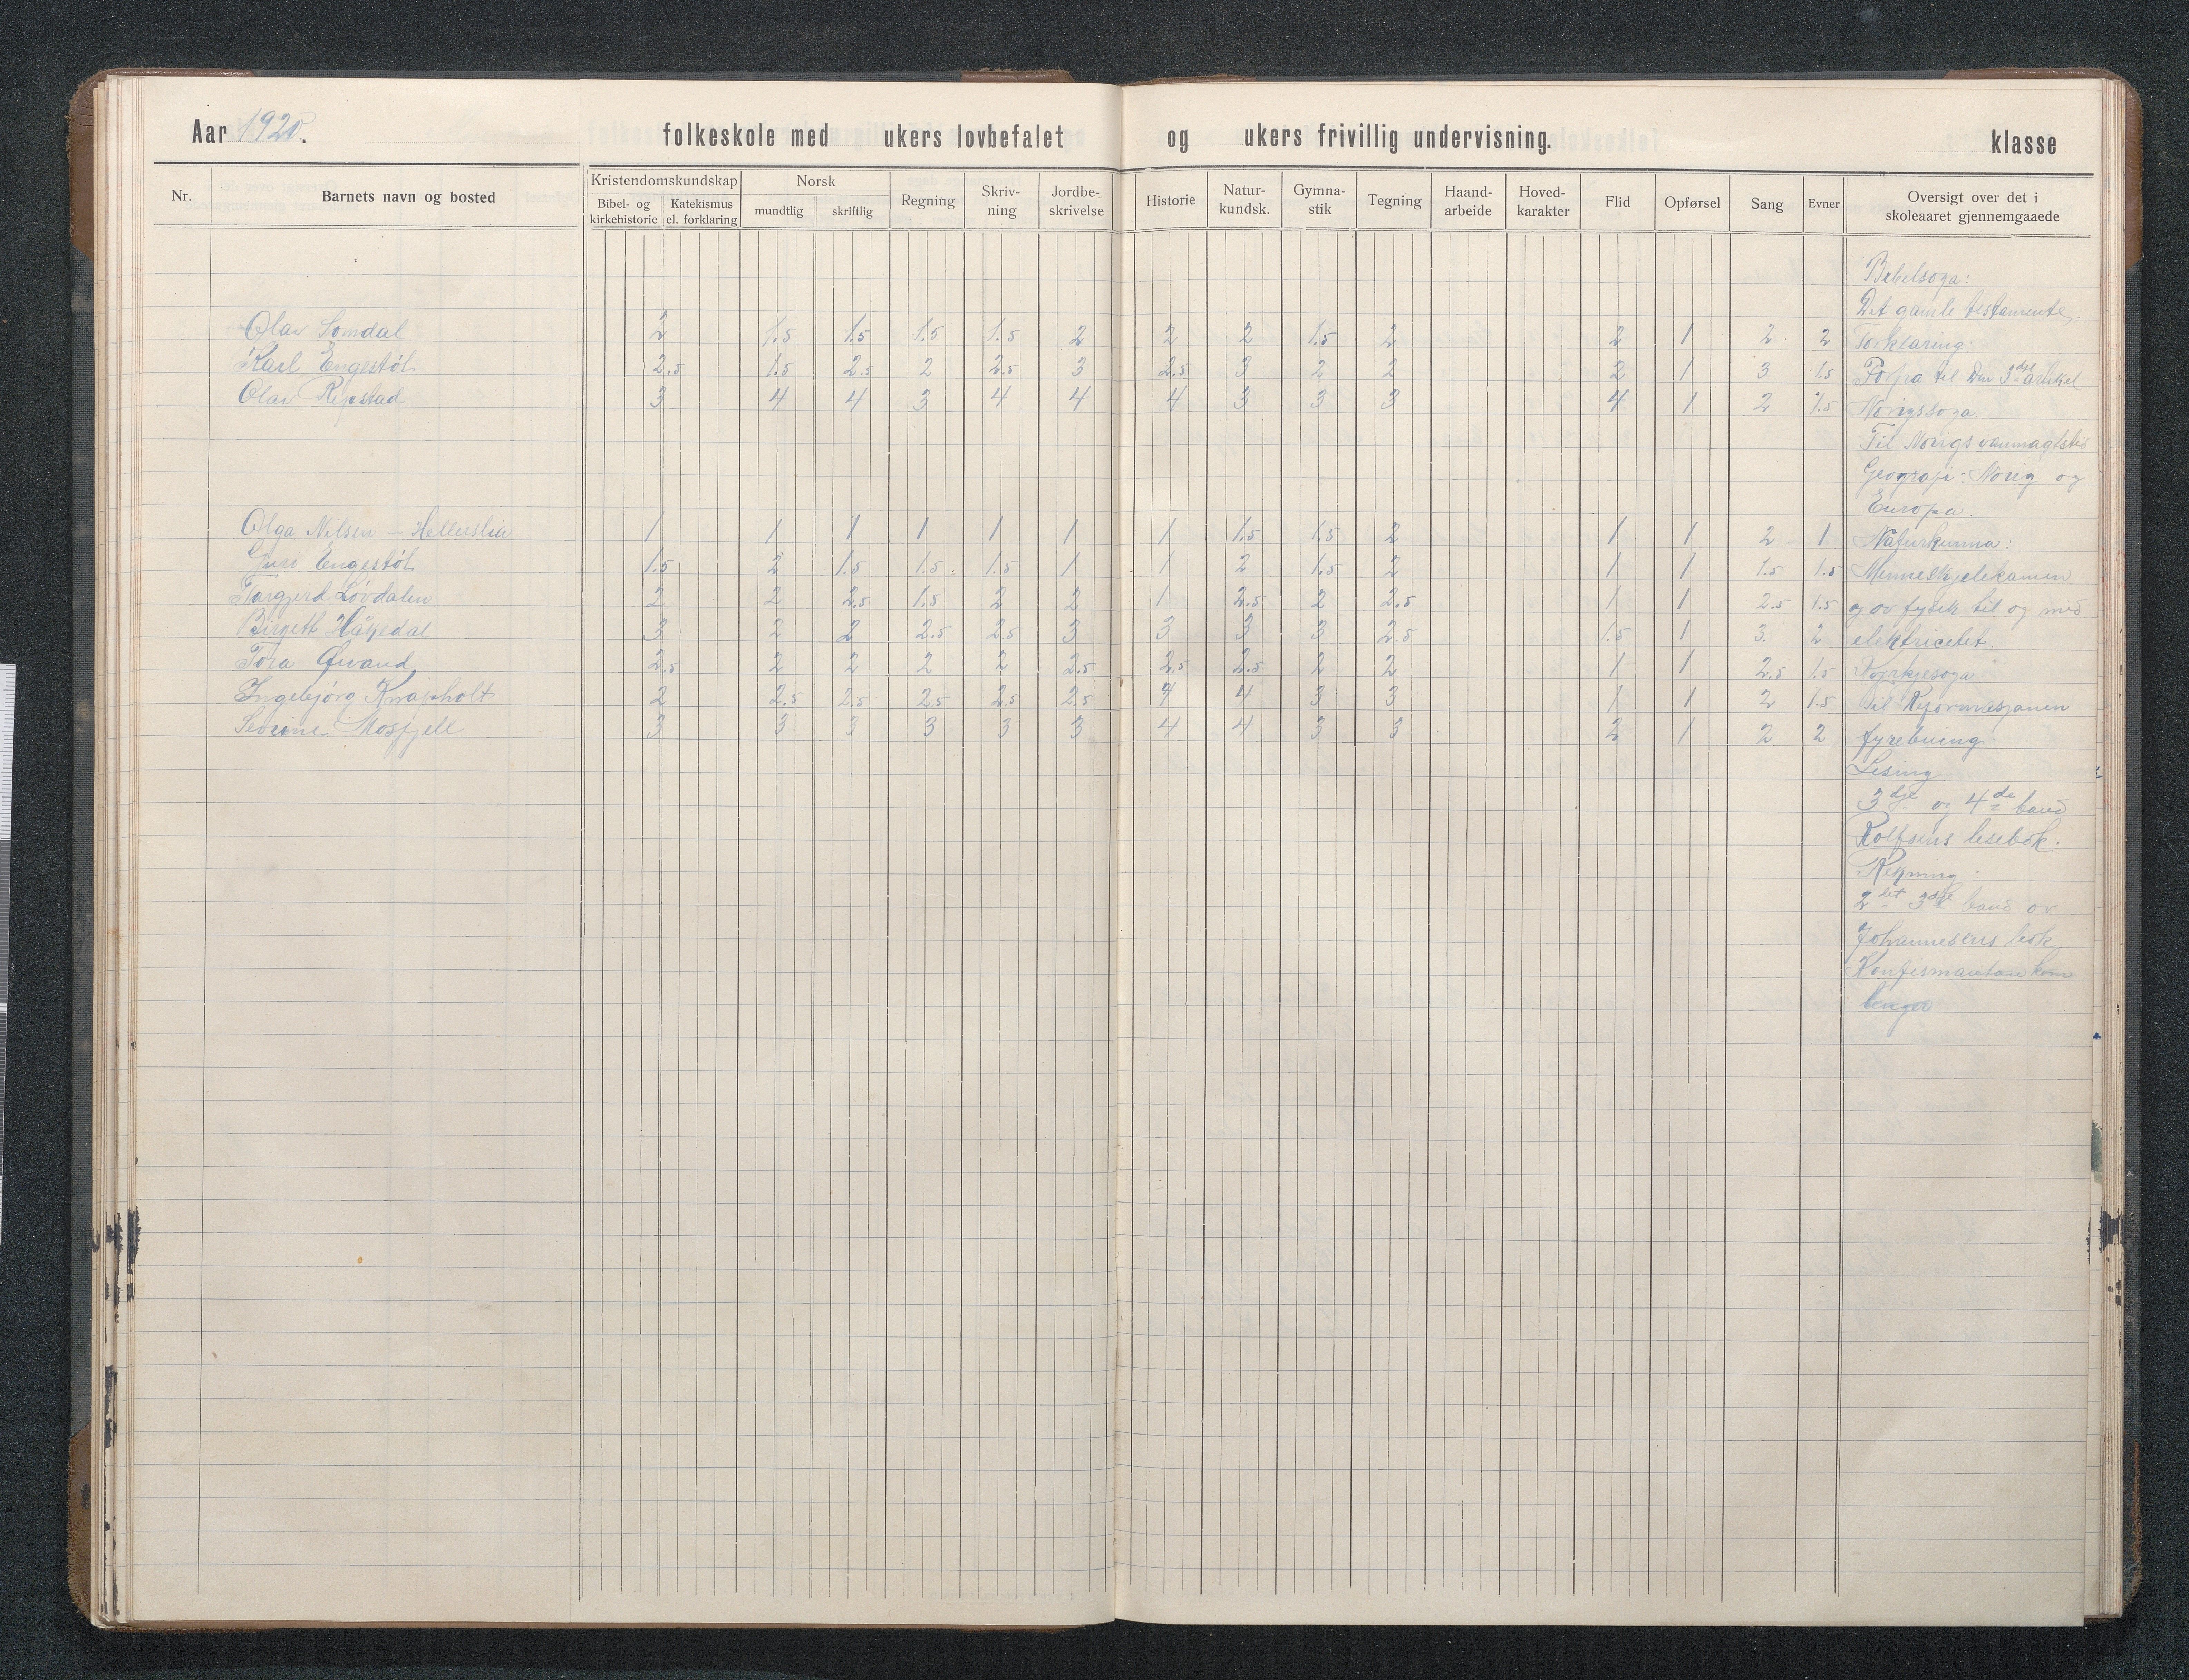 Aar 1920. folkeskole med ukers lovbefalet og ukers frivillig undervisning. klasse
Nr. Barnets navn og bosted Kristendomskundskap Bibel- og kirkehistorie Katekismus el. forklaring Norsk mundtlig skriftlig Regning Skriv-ning Jordbe-skrivelse Historie Natur-kundsk. Gymna-stik Tegning Haand-arbeide Hoved-karakter Flid Opførsel Sang Evner Oversigt over det i skoleaaret gjennemgaaede
Bibelsoga:
Det gamle testamente.
Olav Somdal 2 1.5 1.5 1.5 1.5 2 2 2 1.5 2 2 1 2 2 Forklaring:
Karl Engestøl 2.5 1.5 2.5 2 2.5 3 2.5 3 2 2 2 1 3 1.5 til den 3dje artikel
Olav Ripstad 3 4 4 3 4 4 4 3 3 3 4 1 2 1.5 Norigssoga.
Til Norigs vanmagtstid
Geografi: Norig og
Europa.
Olga Nilsen - Hellerslia 1 1 1 1 1 1 1 1.5 1.5 2 1 1 2 1 Naturkunna:
Guri Engestøl 1.5 2 1.5 1.5 1.5 1 1 2 1.5 2 1 1 1.5 1.5 Menneskjelekamen
Targjerd Løvdalen 2 2 2.5 1.5 2 2 1 2.5 2 2.5 1 1 2.5 1.5 og ov fysik til og med
Birgett Håpedal 3 2 2 2.5 2.5 3 3 3 3 2.5 1.5 1 3. 2 elektricitet.
Tora 2.5 2 2 2 2 2.5 2.5 2.5 2 2 1 1 2.5 1.5 Kyrkjesoga
Ingebjørg Knapholt 2 2.5 2.5 2.5 2.5 2.5 4 4 3 3 1 1 2 1.5 til Reformasjonen
Severine Mosfjell 3 3 3 3 3 3 4 4 3 3 2 1 2 2 fyrebuing
Lesing
3dje og 4de band
Rolfsens lesebok.
Rekning
2det 3dje band ov
Johannesens bok
Konfirmantan kom